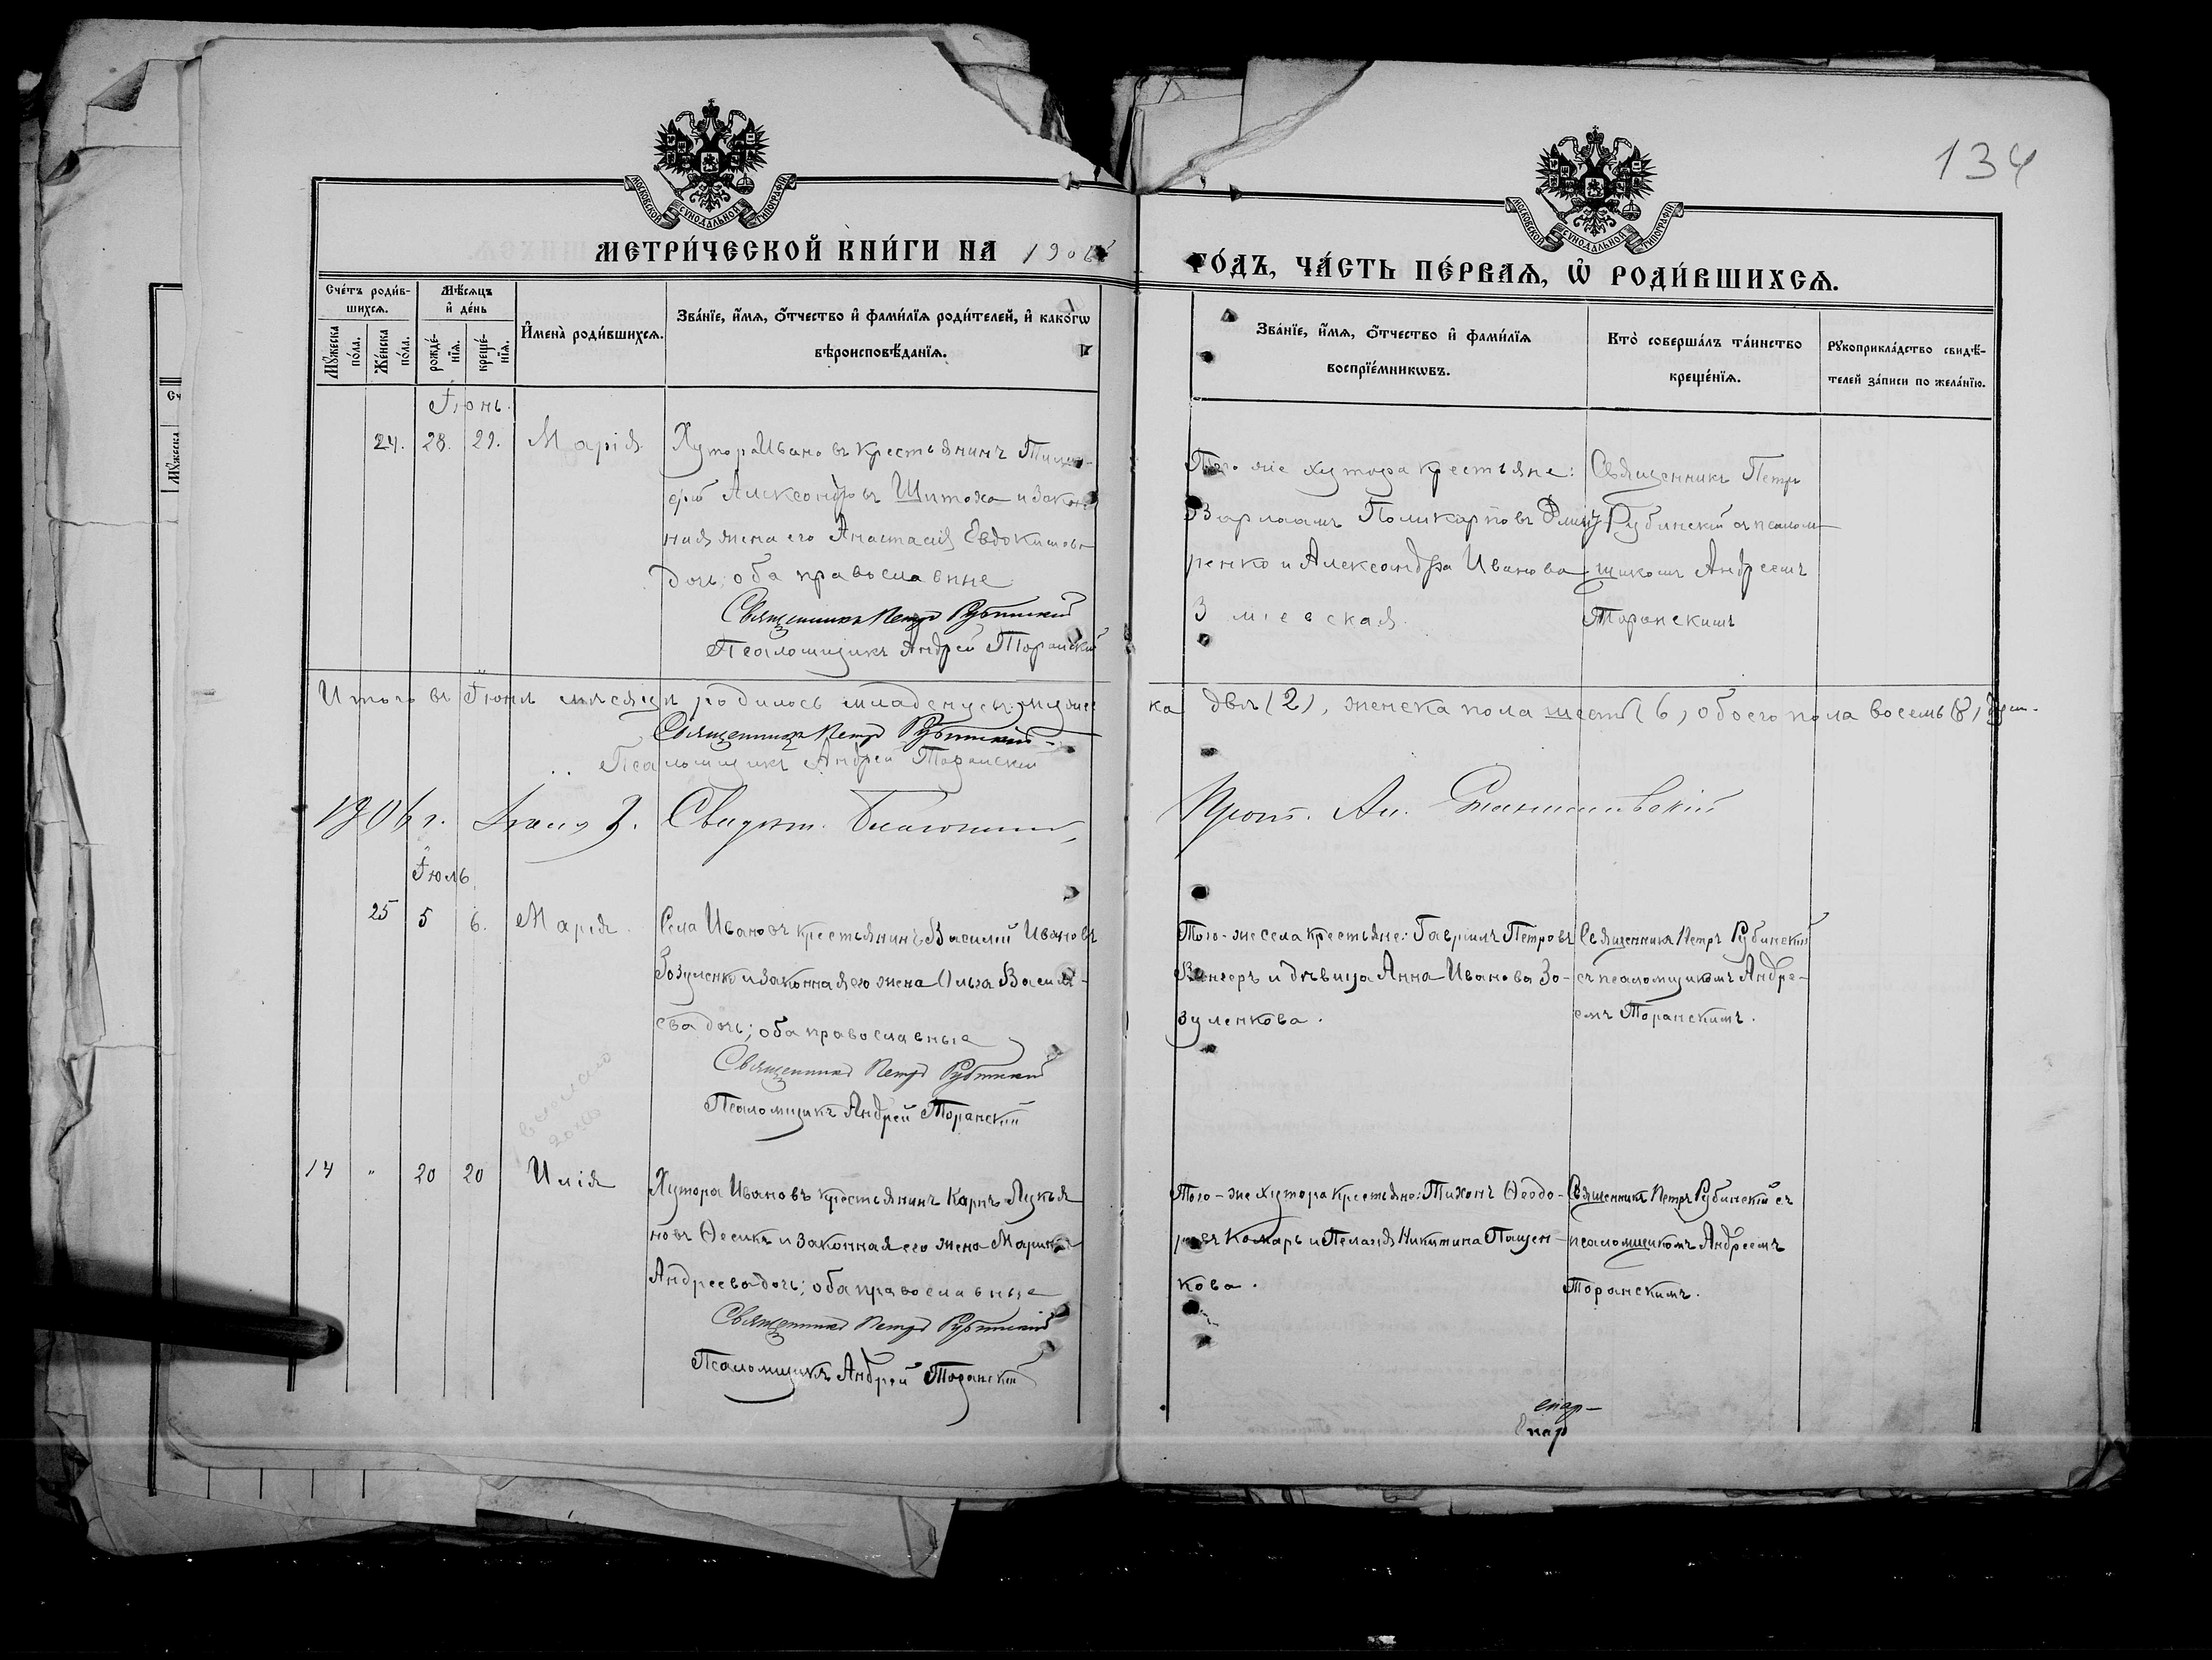 134
МОСКОВСКОЙ СѴНОДАЛЬНОЙ ТИПОГРАФІИ
МОСКОВСКОЙ СѴНОДАЛЬНОЙ ТИПОГРАФІИ
МЕТРИ́ЧЕСКОЙ КНИ́ГИ НА 1906
ГО́ДЪ, ЧА́СТЬ ПЕ́РВАѦ, Ѽ РОДИ́ВШИХСѦ.
Сче́тъ роди́в-
шихсѧ.
Мꙋжеска по́ла.
Же́нска по́ла.
Мѣ́сѧцъ
и҆ де́нь
рожде́-
нїѧ.
креще́-
нїѧ.
И҆мена̀ роди́вшихсѧ.
Зва́нїе, и҆́мѧ, ѻ҆́тчество и҆ фами́лїѧ роди́телей, и҆ како́гѡ
вѣроисповѣ́данїѧ.
Зва́нїе, и҆́мѧ, ѻ҆́тчество и҆ фами́лїѧ
воспрїе́мникѡвъ.
Кто̀ соверша́лъ та́инство
креще́нїѧ.
Рꙋкоприкла́дство свидѣ́-
телей за́писи по жела́нїю.
Іюнь.
24. 28. 29. Марія
Хутора Ивановъ крестьянинъ
Александровъ Шитоха и закон
ная жена его Анастасія Евдокимова
дочь; оба православные
Священникъ Петръ Рубинскій
Псаломщикъ Андрей Торанскій
Того же хутора крестьяне:
Варлаамъ Поликарповъ
ренко и Александра Иванова
Зміевская.
Священникъ Петръ
Рубинскій съ псалом-
щикомъ Андреемъ
Торанскимъ
Итого въ Іюнѣ мѣсяцѣ родилось младенцевъ: мужес
ка двѣ (2), женска пола шесть (6), обоего пола восемь (8)
Священникъ Петръ Рубинскій
Псаломщикъ Андрей Торанскій
1906 г. 3. Благочинный,
Прот. Ал.
Іюль
25 5 6. Марія.
Села Ивановъ крестьянинъ Василій Ивановъ
Зозуленко и законная его жена Ольга Василі-
ева дочь; оба православные
Священникъ Петръ Рубинскій
Псаломщикъ Андрей Торанскій
Того-же села крестьяне: Гавріилъ Петровъ
Венгеръ и дѣвица Анна Иванова Зо-
зуленкова.
Священникъ Петръ Рубинскій
съ псаломщикомъ Андре-
емъ Торанскимъ.
14 " 20 20 Илія
Хутора Ивановъ крестьянинъ Карпъ Лукья
новъ Ѳесикъ и законная его жена Марина
Андреева дочь; оба православные
Священникъ Петръ Рубинскій
Псаломщикъ Андрей Торанскій
Того-же хутора крестьяне: Тихонъ Ѳеодо-
ровъ Комарь и Пелагія Никитина Пащен-
кова.
Священникъ Петръ Рубинскій съ
псаломщикомъ Андреемъ
Торанскимъ.